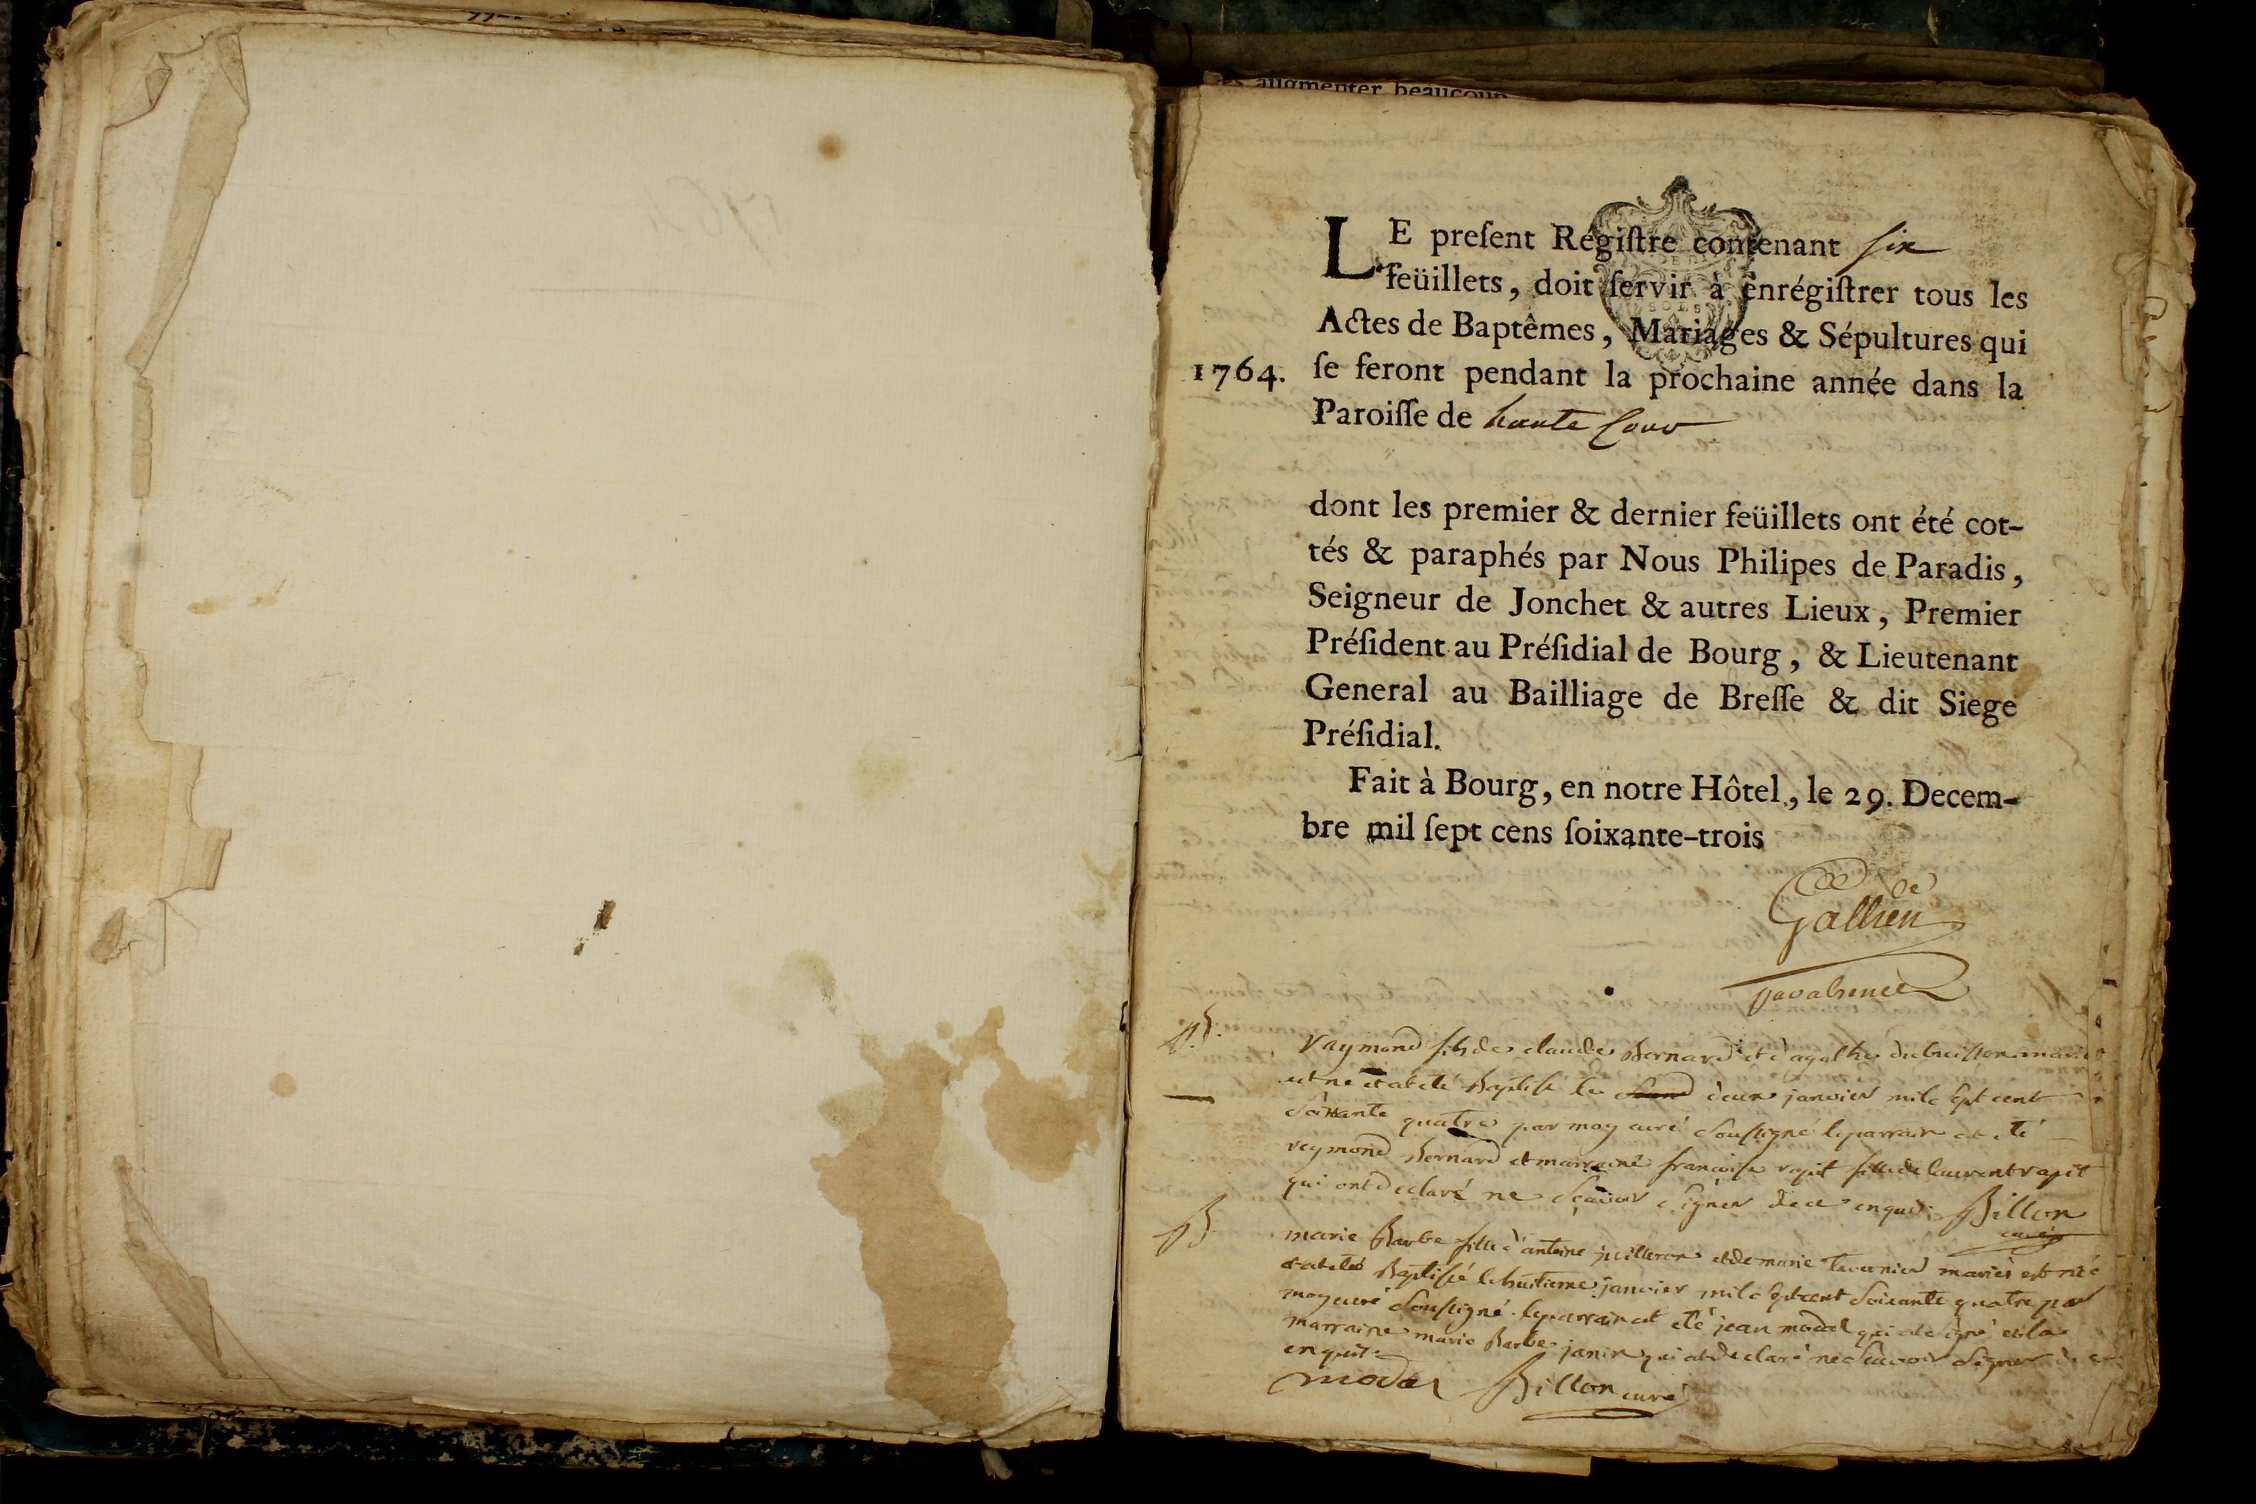 augmenter beaucoup
LE preſent Régiſtre contenant six
feüillets, doit ſervir à enrégiſtrer tous les
Actes de Baptêmes, Mariages & Sépultures qui
1764. ſe feront pendant la prochaine année dans la
Paroiſſe de haute Cour
dont les premier & dernier feüillets ont été cot-
tés & paraphés par Nous Philipes de Paradis,
Seigneur de Jonchet & autres Lieux, Premier
Préſident au Préſidial de Bourg, & Lieutenant
General au Bailliage de Breſſe & dit Siege
Préſidial.
Fait à Bourg, en notre Hôtel, le 29. Decem-
bre mil ſept cens ſoixante-trois
Gallien
B.
raymond fils de claude Bernard et d'agathe dubuisson mariés
est né et at eté Baptisé le deux janvier mil sept cent
soixante quatre par moy curé soussigné le parrain at eté
reymond Bernard et marraine francoise rapit fille de laurent rapit
qui ont declaré ne sçavoir signer de ce enquis. Billon
curé
B.
marie Barbe fille d'antoine juilleron et de marie tavernier mariés est née
et at eté Baptisée le huitieme janvier mil sept cent soixante quatre par
moy curé soussigné. le parrain at eté jean modal qui at signé et la
marraine marie Barbe janin qui at declaré ne sçavoir signer de ce
enquis.
modal Billon curé